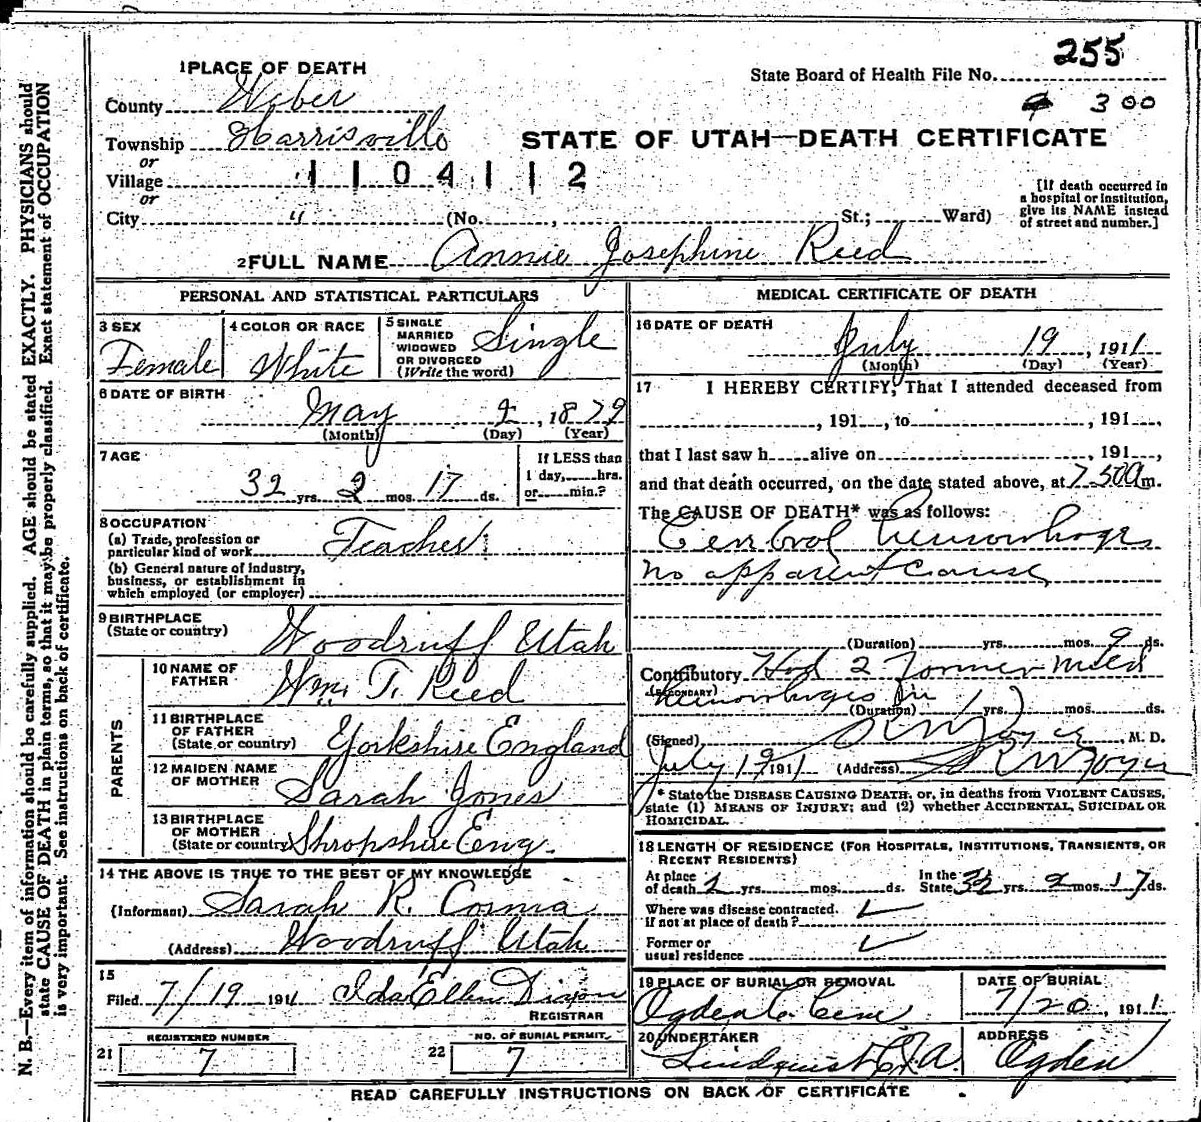 255
1 PLACE OF DEATH
State Board of Health File No.
County Weber
3 00
Township Harrisville
STATE OF UTAH—DEATH CERTIFICATE
or
Village " 1104112
or
City " (No. , St.; Ward)
[If death occurred in a hospital or institution, give its NAME instead of street and number.]
2 FULL NAME Annie Josephine Reed
PERSONAL AND STATISTICAL PARTICULARS
3 SEX Female
4 COLOR OR RACE White
5 SINGLE MARRIED WIDOWED OR DIVORCED (Write the word) Single
6 DATE OF BIRTH May 2, 1879
(Month) (Day) (Year)
7 AGE 32 yrs. 2 mos. 17 ds.
If LESS than 1 day, hrs. or min.?
8 OCCUPATION
(a) Trade, profession or particular kind of work Teacher
(b) General nature of industry, business, or establishment in which employed (or employer)
9 BIRTHPLACE (State or country) Woodruff Utah
PARENTS
10 NAME OF FATHER Wm. T. Reed
11 BIRTHPLACE OF FATHER (State or country) Yorkshire England
12 MAIDEN NAME OF MOTHER Sarah Jones
13 BIRTHPLACE OF MOTHER (State or country) Shropshire Eng.
14 THE ABOVE IS TRUE TO THE BEST OF MY KNOWLEDGE
(Informant) Sarah R.
(Address) Woodruff Utah
15
Filed 7/19 1911 Ida Ellen Dixon
REGISTRAR
21 REGISTERED NUMBER 7
22 NO. OF BURIAL PERMIT 7
MEDICAL CERTIFICATE OF DEATH
16 DATE OF DEATH July 19, 1911
(Month) (Day) (Year)
17 I HEREBY CERTIFY, That I attended deceased from
, 191 , to , 191 ,
that I last saw h alive on , 191 ,
and that death occurred, on the date stated above, at 7 30 a m.
The CAUSE OF DEATH* was as follows:
Cerebral hemorrhage
no apparent cause
(Duration) yrs. mos. 9 ds.
Contributory Had 2 former
(SECONDARY) hemorrhages in
(Duration) yrs. mos. ds.
(Signed) , M. D.
July 19 1911 (Address)
* State the DISEASE CAUSING DEATH, or, in deaths from VIOLENT CAUSES, state (1) MEANS OF INJURY; and (2) whether ACCIDENTAL, SUICIDAL OR HOMICIDAL.
18 LENGTH OF RESIDENCE (FOR HOSPITALS, INSTITUTIONS, TRANSIENTS, OR RECENT RESIDENTS)
At place of death 2 yrs. mos. ds. In the State 32 yrs. 2 mos. 17 ds.
Where was disease contracted, if not at place of death? ✓
Former or usual residence ✓
19 PLACE OF BURIAL OR REMOVAL Ogden C. Cem
DATE OF BURIAL 7/20, 1911
20 UNDERTAKER Lindquist
ADDRESS Ogden
READ CAREFULLY INSTRUCTIONS ON BACK OF CERTIFICATE
N. B.—Every item of information should be carefully supplied. AGE should be stated EXACTLY. PHYSICIANS should
state CAUSE OF DEATH in plain terms, so that it may be properly classified. Exact statement of OCCUPATION
is very important. See instructions on back of certificate.